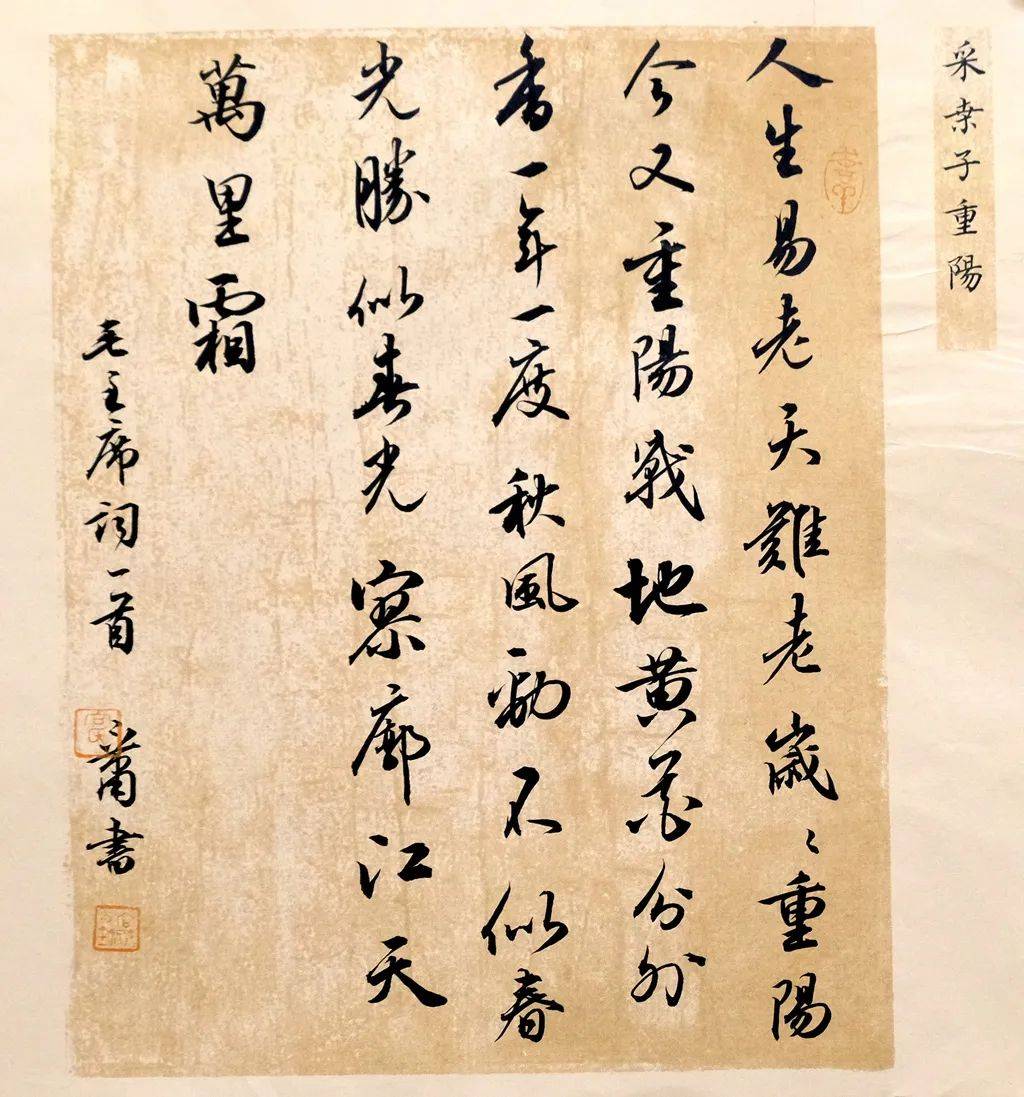 采桑子重陽
人生易老天難老歲々重陽
今又重陽戰地黄花分外
香一年一度秋風勁不似春
光勝似春光寥廓江天
萬里霜
毛主席詞一首 肅書